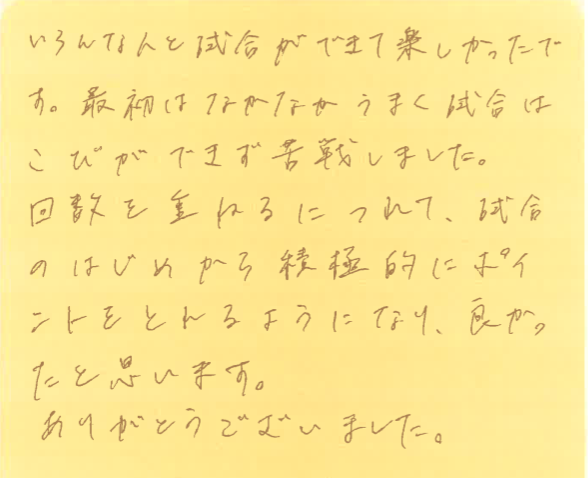 いろんな人と試合ができて楽しかったで
す。最初はなかなかうまく試合は
こびができず苦戦しました。
回数を重ねるにつれて、試合
のはじめから積極的にポイ
ントをとれるようになり、良かっ
たと思います。
ありがとうございました。